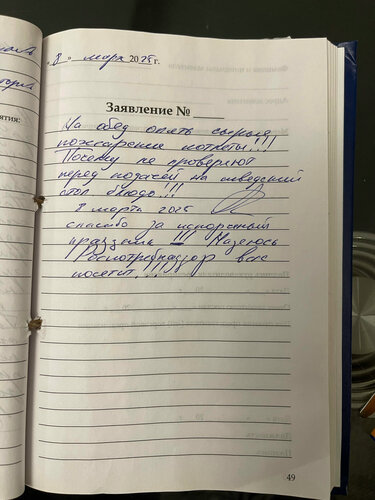 ятия:
„8" марта 2025 г.
Заявление №
На обед опять сырые
пожарские котлеты!!!
Почему не проверяют
перед подачей на шведский
стол блюдо!!!
8 марта 2025
спасибо за испорченный
праздник !!! Надеюсь
Роспотребнадзор вас
посетит!!!
49